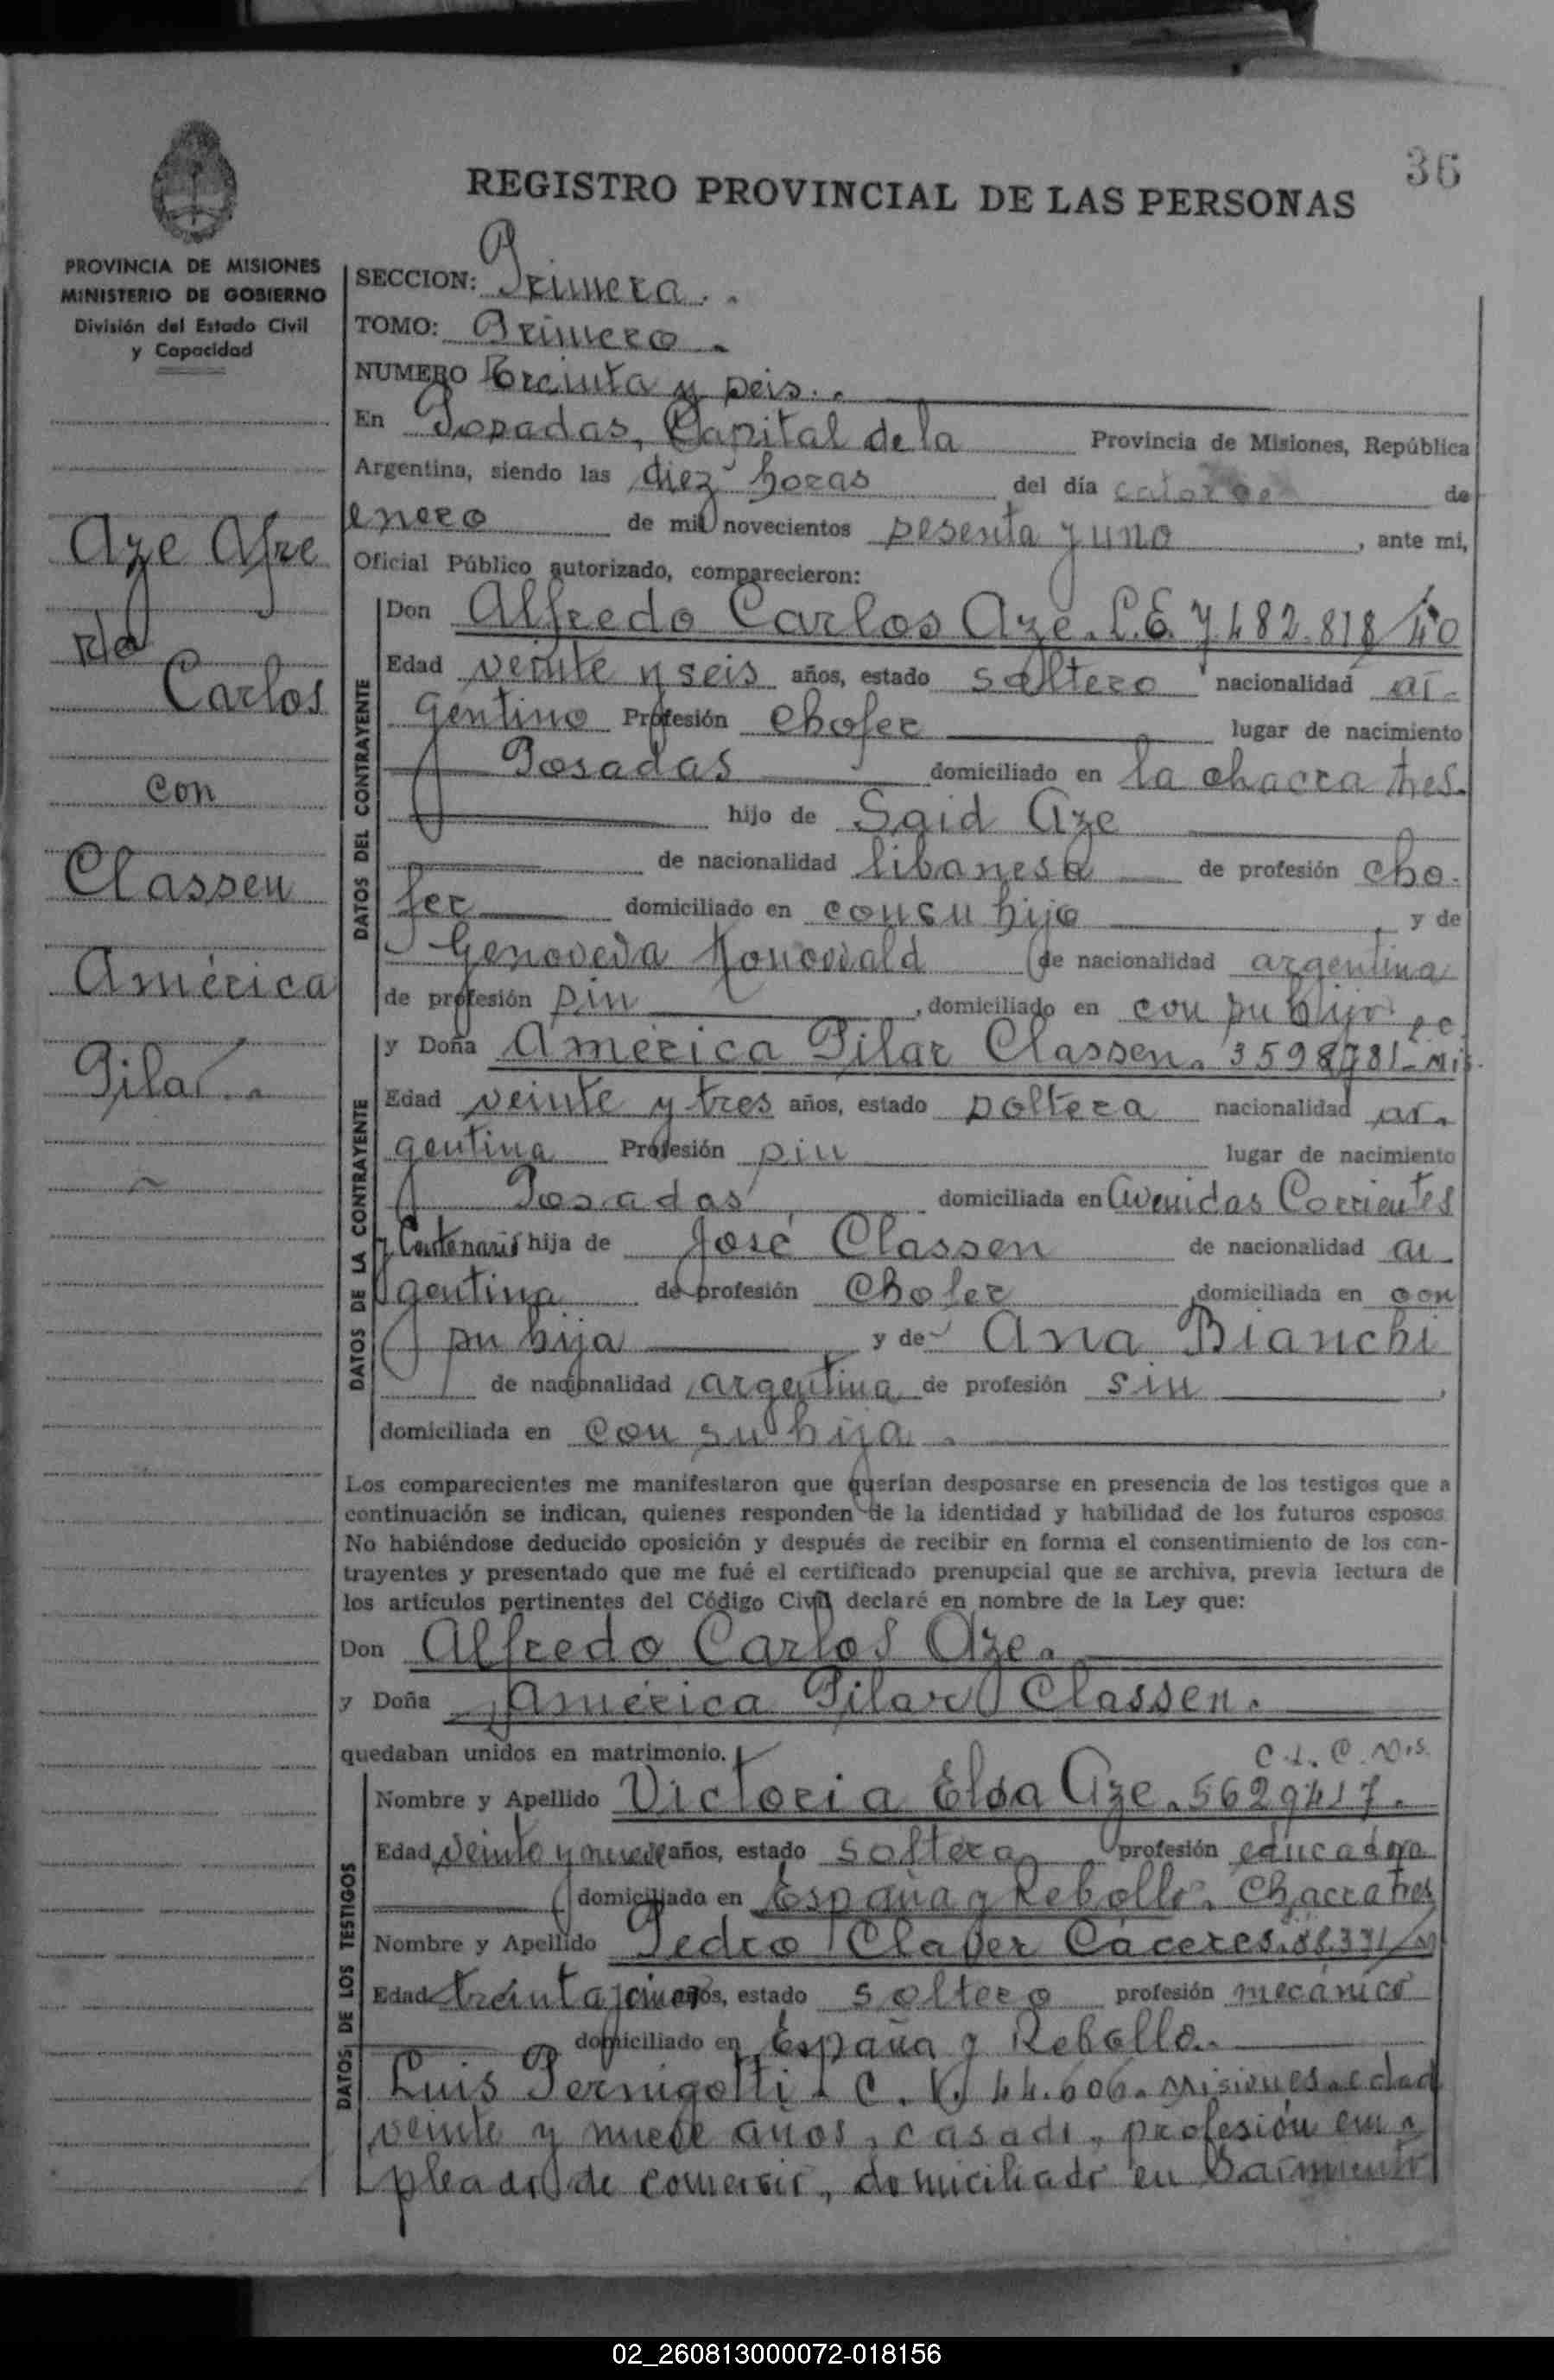 36
REGISTRO PROVINCIAL DE LAS PERSONAS
PROVINCIA DE MISIONES
MINISTERIO DE GOBIERNO
División del Estado Civil
y Capacidad
Aze Alfre
do
Carlos
con
Classen
América
Pilar.
SECCION: Primera.
TOMO: Primero.
NUMERO Treinta y seis.
En Posadas, Capital de la Provincia de Misiones, República
Argentina, siendo las diez horas del día catorce de
enero de mil novecientos sesenta y uno, ante mi,
Oficial Público autorizado, comparecieron:
DATOS DEL CONTRAYENTE
Don Alfredo Carlos Aze. L.E. 7.482.818/40
Edad veinte y seis años, estado soltero nacionalidad ar-
gentino Profesión chofer lugar de nacimiento
Posadas domiciliado en la chacra tres.
hijo de Said Aze
de nacionalidad libanesa de profesión cho-
fer domiciliado en con su hijo, y de
Genoveva de nacionalidad argentina
de profesión sin, domiciliado en con su hijo
DATOS DE LA CONTRAYENTE
y Doña América Pilar Classen. 3598781-Mis.
Edad veinte y tres años, estado soltera nacionalidad ar-
gentina Profesión sin lugar de nacimiento
Posadas domiciliada en Avenidas Corrientes
y Centenario hija de José Classen de nacionalidad ar-
gentina de profesión Chofer, domiciliada en con
su hija y de Ana Bianchi
de nacionalidad argentina de profesión sin,
domiciliada en con su hija.
Los comparecientes me manifestaron que querían desposarse en presencia de los testigos que a
continuación se indican, quienes responden de la identidad y habilidad de los futuros esposos
No habiéndose deducido oposición y después de recibir en forma el consentimiento de los con-
trayentes y presentado que me fué el certificado prenupcial que se archiva, previa lectura de
los artículos pertinentes del Código Civil declaré en nombre de la Ley que:
Don Alfredo Carlos Aze.
y Doña América Pilar Classen.
quedaban unidos en matrimonio.
DATOS DE LOS TESTIGOS
Nombre y Apellido Victoria Elsa Aze. 5629417.
Edad veinte y nueve años, estado soltera profesión educadora
domiciliado en España y Rebollo. Chacra tres
Nombre y Apellido Pedro Claver Cáceres.
Edad treinta y cinco años, estado soltero profesión mecánico
domiciliado en España y Rebollo.
Luis Pernigotti. C. 44.606. Misiones. edad
veinte y nueve años, casado, profesión em-
pleado de comercio, domiciliado en Sarmiento
02_260813000072-018156